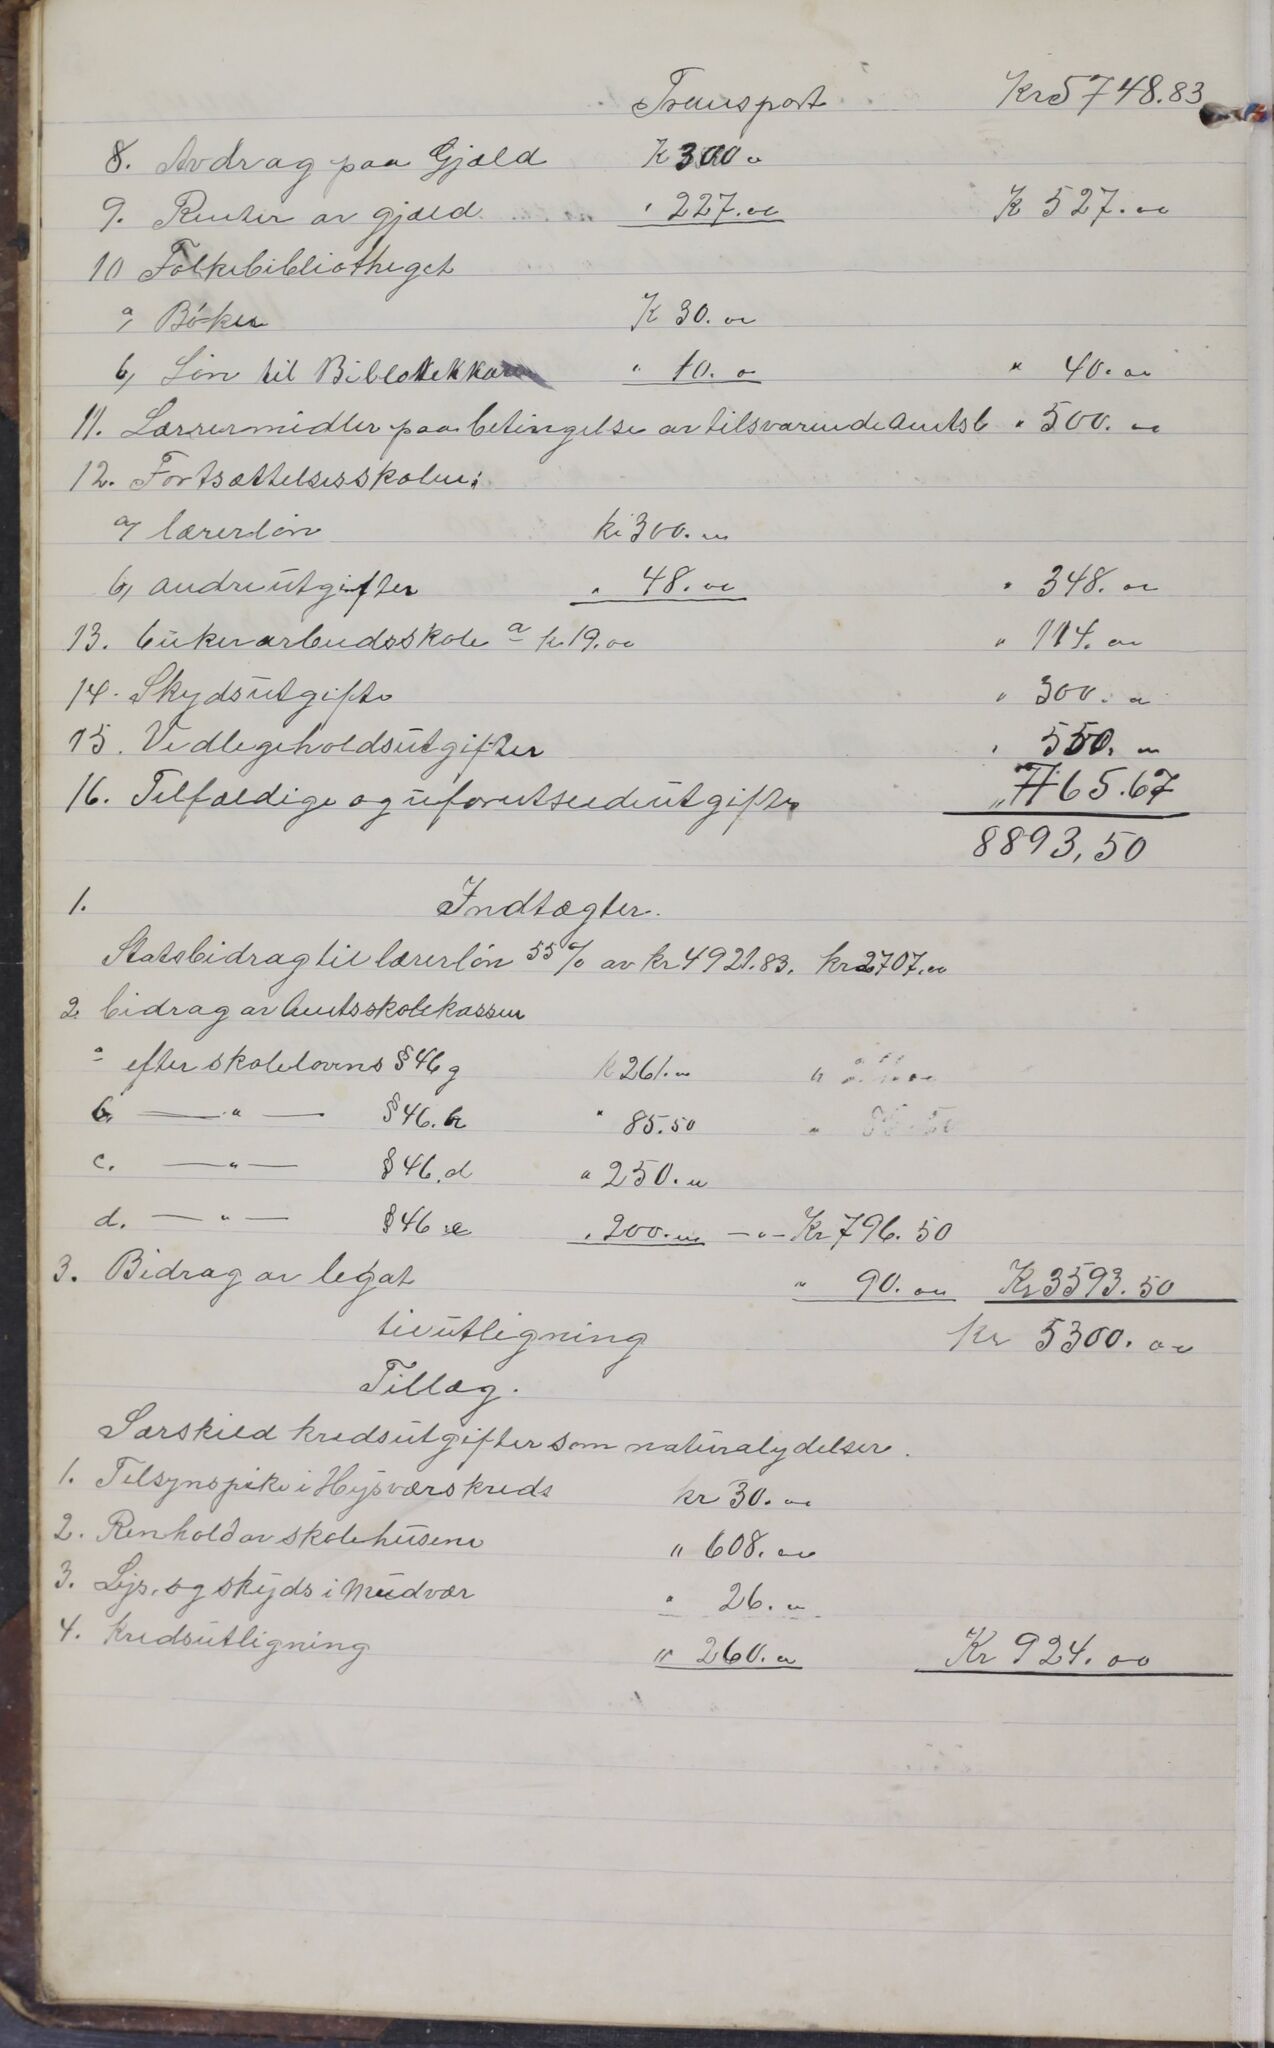 Transport Kr 5748.83
8. Avdrag paa Gjæld K 300 "
9. Renter av gjæld " 227.00 K 527.00
10 Folkebibliotheget
a, Bøker K 30.00
b, Løn til Bibliotekkaren " 10.00 " 40.00
11. Lærermidler paa betingelse av tilsvarende Amtsb " 500.00
12. Fortsættelsesskolen:
a, lærerløn kr 300.00
b, andre utgifter " 48.00 " 348.00
13. 6 uker arbeidsskole a kr 19.00 " 114.00
14. Skydsutgifter " 300.00
15. Vedlegeholdsutgifter " 550.00
16. Tilfældige og uforutseede utgifter " 765.67
8893,50
1. Indtægter.
Statsbidrag til lærerløn 55% av kr 4921.83. kr 2707.00
2. bidrag av Amtsskolekassen
a efter skolelovens § 46 g K 261.00 "
b, — " — § 46. b " 85.50 "
c. — " — § 46. d " 250.00
d. — " — § 46 e " 200.00 — " — Kr 796.50
3. Bidrag av legat " 90.00 Kr 3593.50
til utligning kr 5300.00
Tillæg.
Særskild kredsutgifter som naturalydelser.
1. Tilsynspike i Hysværskreds kr 30.00
2. Renhold av skolehusene " 608.00
3. Lys. og skyds i Mudvær " 26.00
4. Kredsutligning " 260.00 Kr 924.00